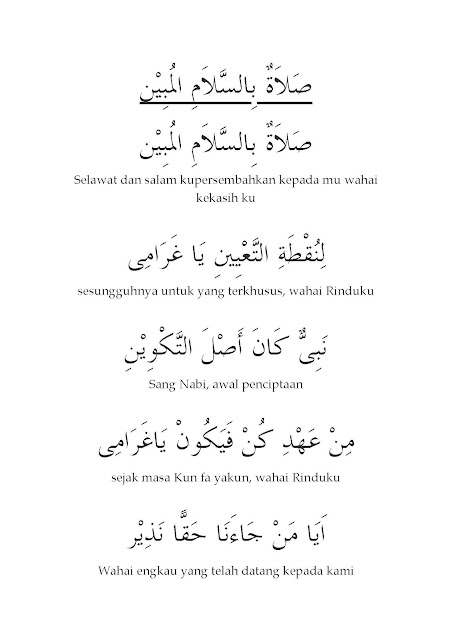 صَلاَةٌ بِالسَّلاَمِ الْمُبِيْنِ
صَلاَةٌ بِالسَّلاَمِ الْمُبِيْنِ
Selawat dan salam kupersembahkan kepada mu wahai
kekasih ku
لِنُقْطَةِ التَّعْيِينِ يَا غَرَامِى
sesungguhnya untuk yang terkhusus, wahai Rinduku
نَبِىٌّ كَانَ أَصْلَ التَّكْوِيْنِ
Sang Nabi, awal penciptaan
مِنْ عَهْدِ كُنْ فَيَكُونْ يَاغَرَامِى
sejak masa Kun fa yakun, wahai Rinduku
اَيَا مَنْ جَاءَنَا حَقًّا نَذِيْر
Wahai engkau yang telah datang kepada kami